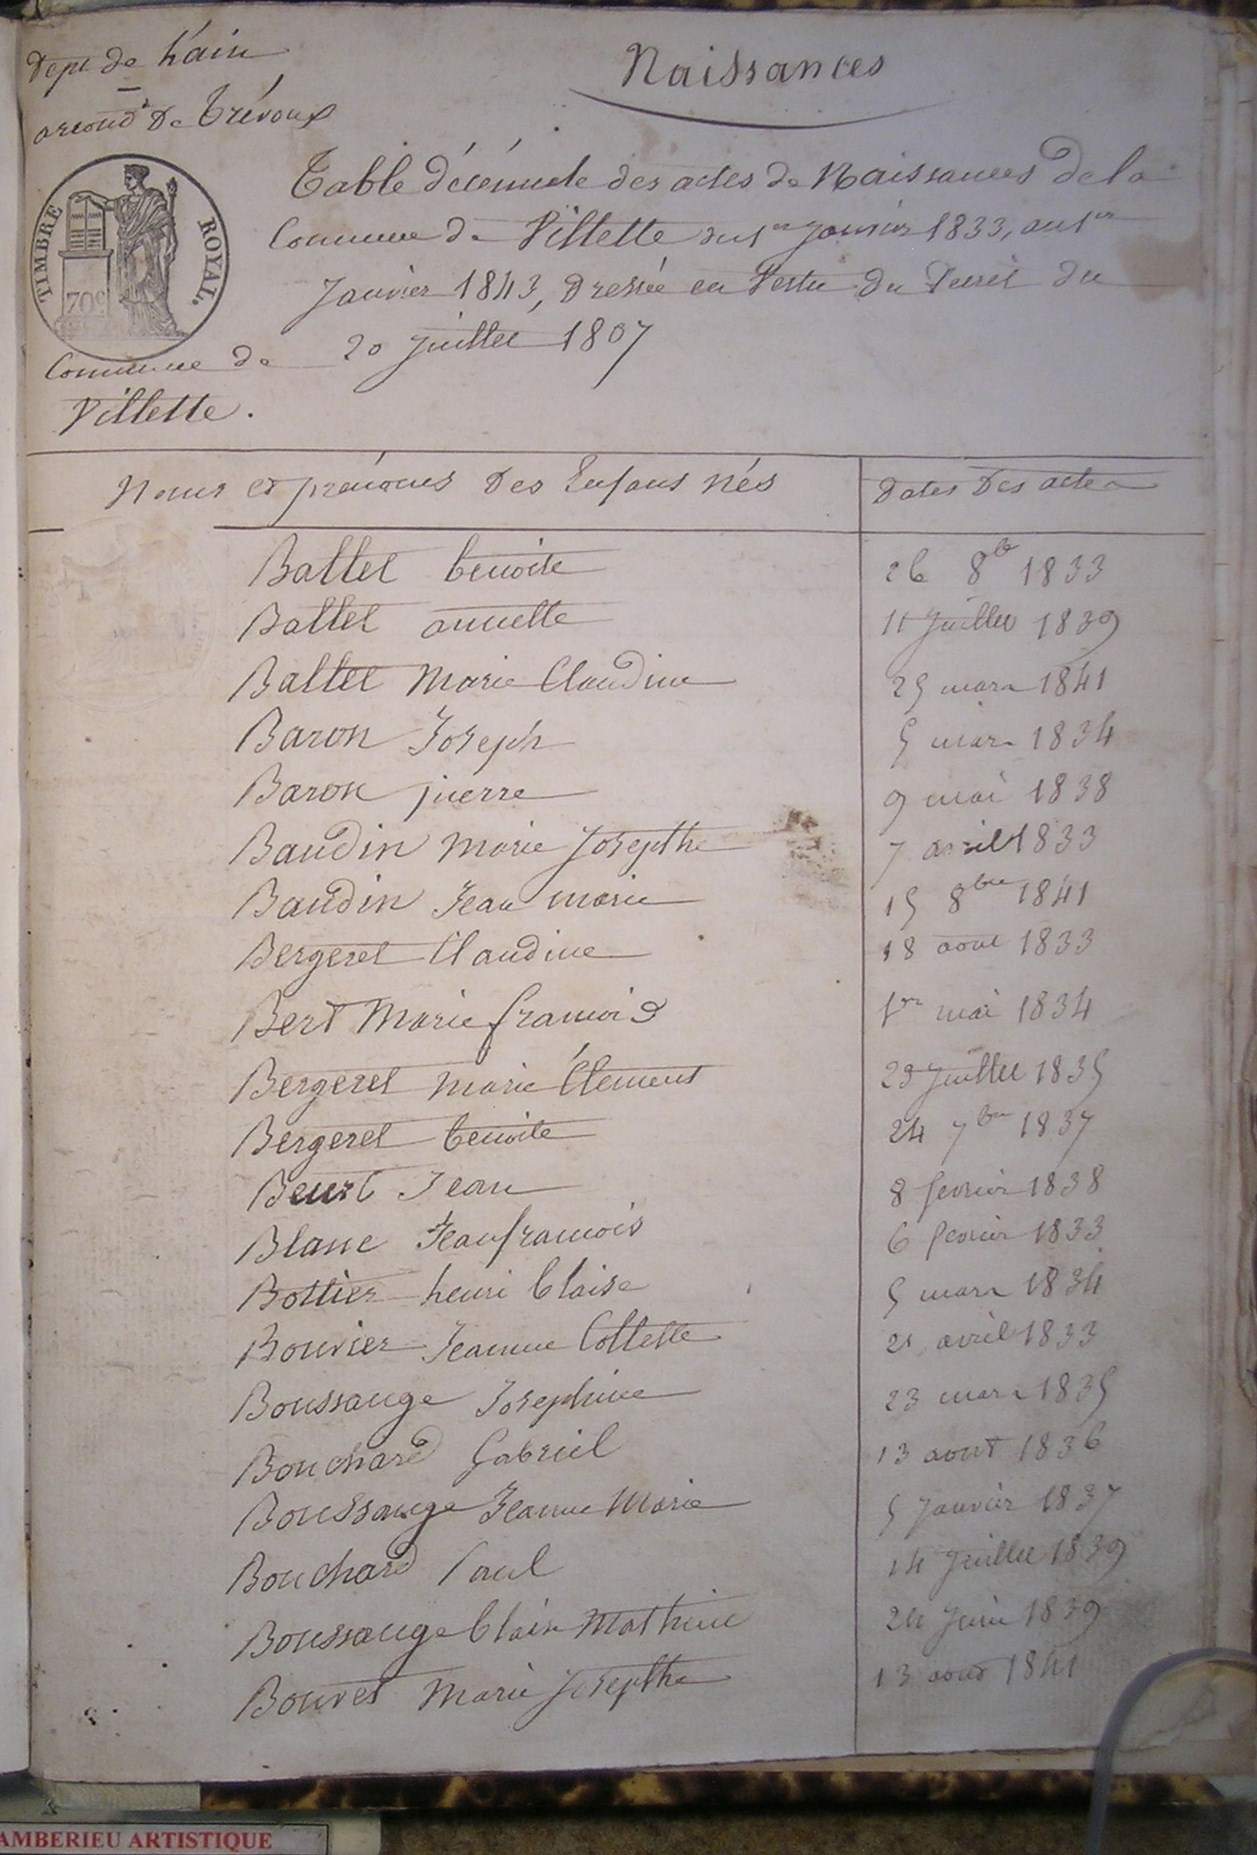 Dept de l'ain
Naissances
arrond.t De Trévoux
Table décennale des actes de Naissances de la
Commune de Villette du 1er janvier 1833, au 1er
Janvier 1843, Dressée en Vertu Du Decrèt du
20 juillet 1807
TIMBRE ROYAL.
70c
Commune de
Villette.
Noms et prénoms Des Enfans nés
Dates Des actes
Ballet benoite 26 8b 1833
Ballet annette 11 Juillet 1839
Ballet Marie Claudine 25 mars 1841
Baron Joseph 5 mars 1834
Baron pierre 9 mai 1838
Baudin Marie Josepthe 7 avril 1833
Baudin Jean marie 15 8bre 1841
Bergeret Claudine 18 aout 1833
Bert Marie francois 1er mai 1834
Bergeret marie Clement 23 Juillet 1835
Bergeret benoite 24 7bre 1837
Jean 8 fevrier 1838
Blanc Jean francois 6 fevrier 1833
Bottier henri blaise 5 mars 1834
Bouvier Jeanne Collette 21 avril 1833
Boussange Josephine 23 mars 1835
Bouchard Gabriel 13 aout 1836
Boussange Jeanne Marie 5 Janvier 1837
Bouchard Paul 14 Juillet 1839
Boussange Mathieu 24 Juin 1839
Bouvet Marie Josepthe 13 aout 1841
AMBERIEU ARTISTIQUE